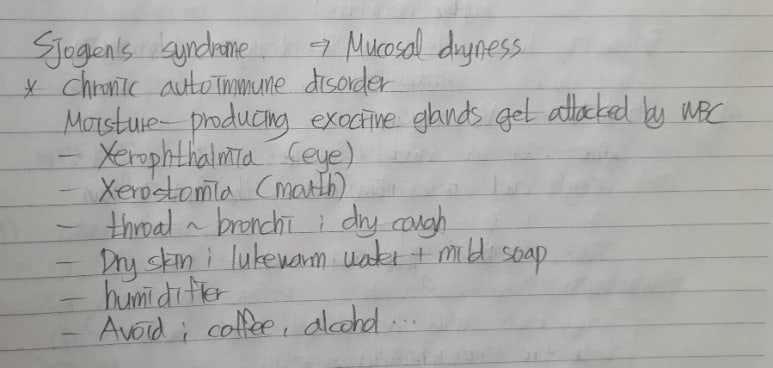 Sjogen's syndrome. → Mucosal dryness
* Chronic autoimmune disorder
Moisture-producing exocrine glands get attacked by WBC
- Xerophthalmia (eye)
- Xerostomia (mouth)
- throat ~ bronchi ; dry cough
- Dry skin ; lukewarm water + mild soap
- humidifier
- Avoid ; coffee, alcohol ...